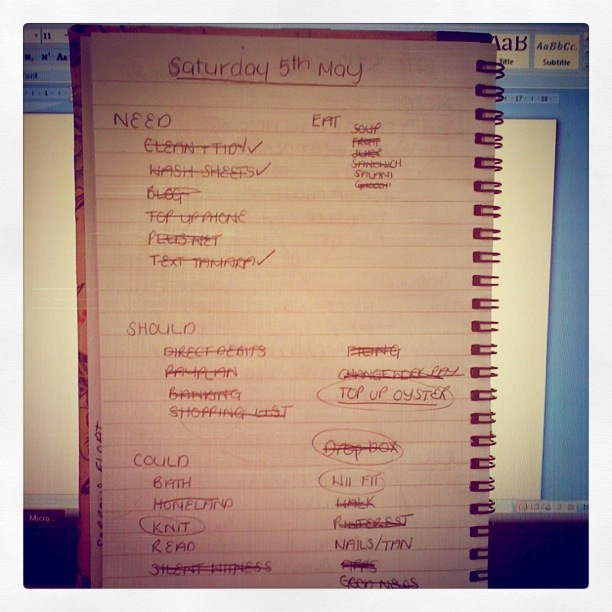 11
AaB
AaBbCc.
Title
Subtitle
17 18
Saturday 5th May
NEED
CLEAN + TIDY ✓
WASH SHEETS ✓
BLOG
TOP UP PHONE
PLUSNET
TEXT TAMARA ✓
EAT
SOUP
FRUIT
JUICE
SANDWICH
SALAMI
GNOCCHI
SHOULD
DIRECT DEBITS
PAYPLAN
BANKING
SHOPPING LIST
FILING
TOP UP OYSTER
COULD
BATH
HOMELAND
KNIT
READ
SILENT WITNESS
Drop box
WII FIT
WALK
PINTEREST
NAILS/TAN
APPS
GOOD NEWS
Micro...